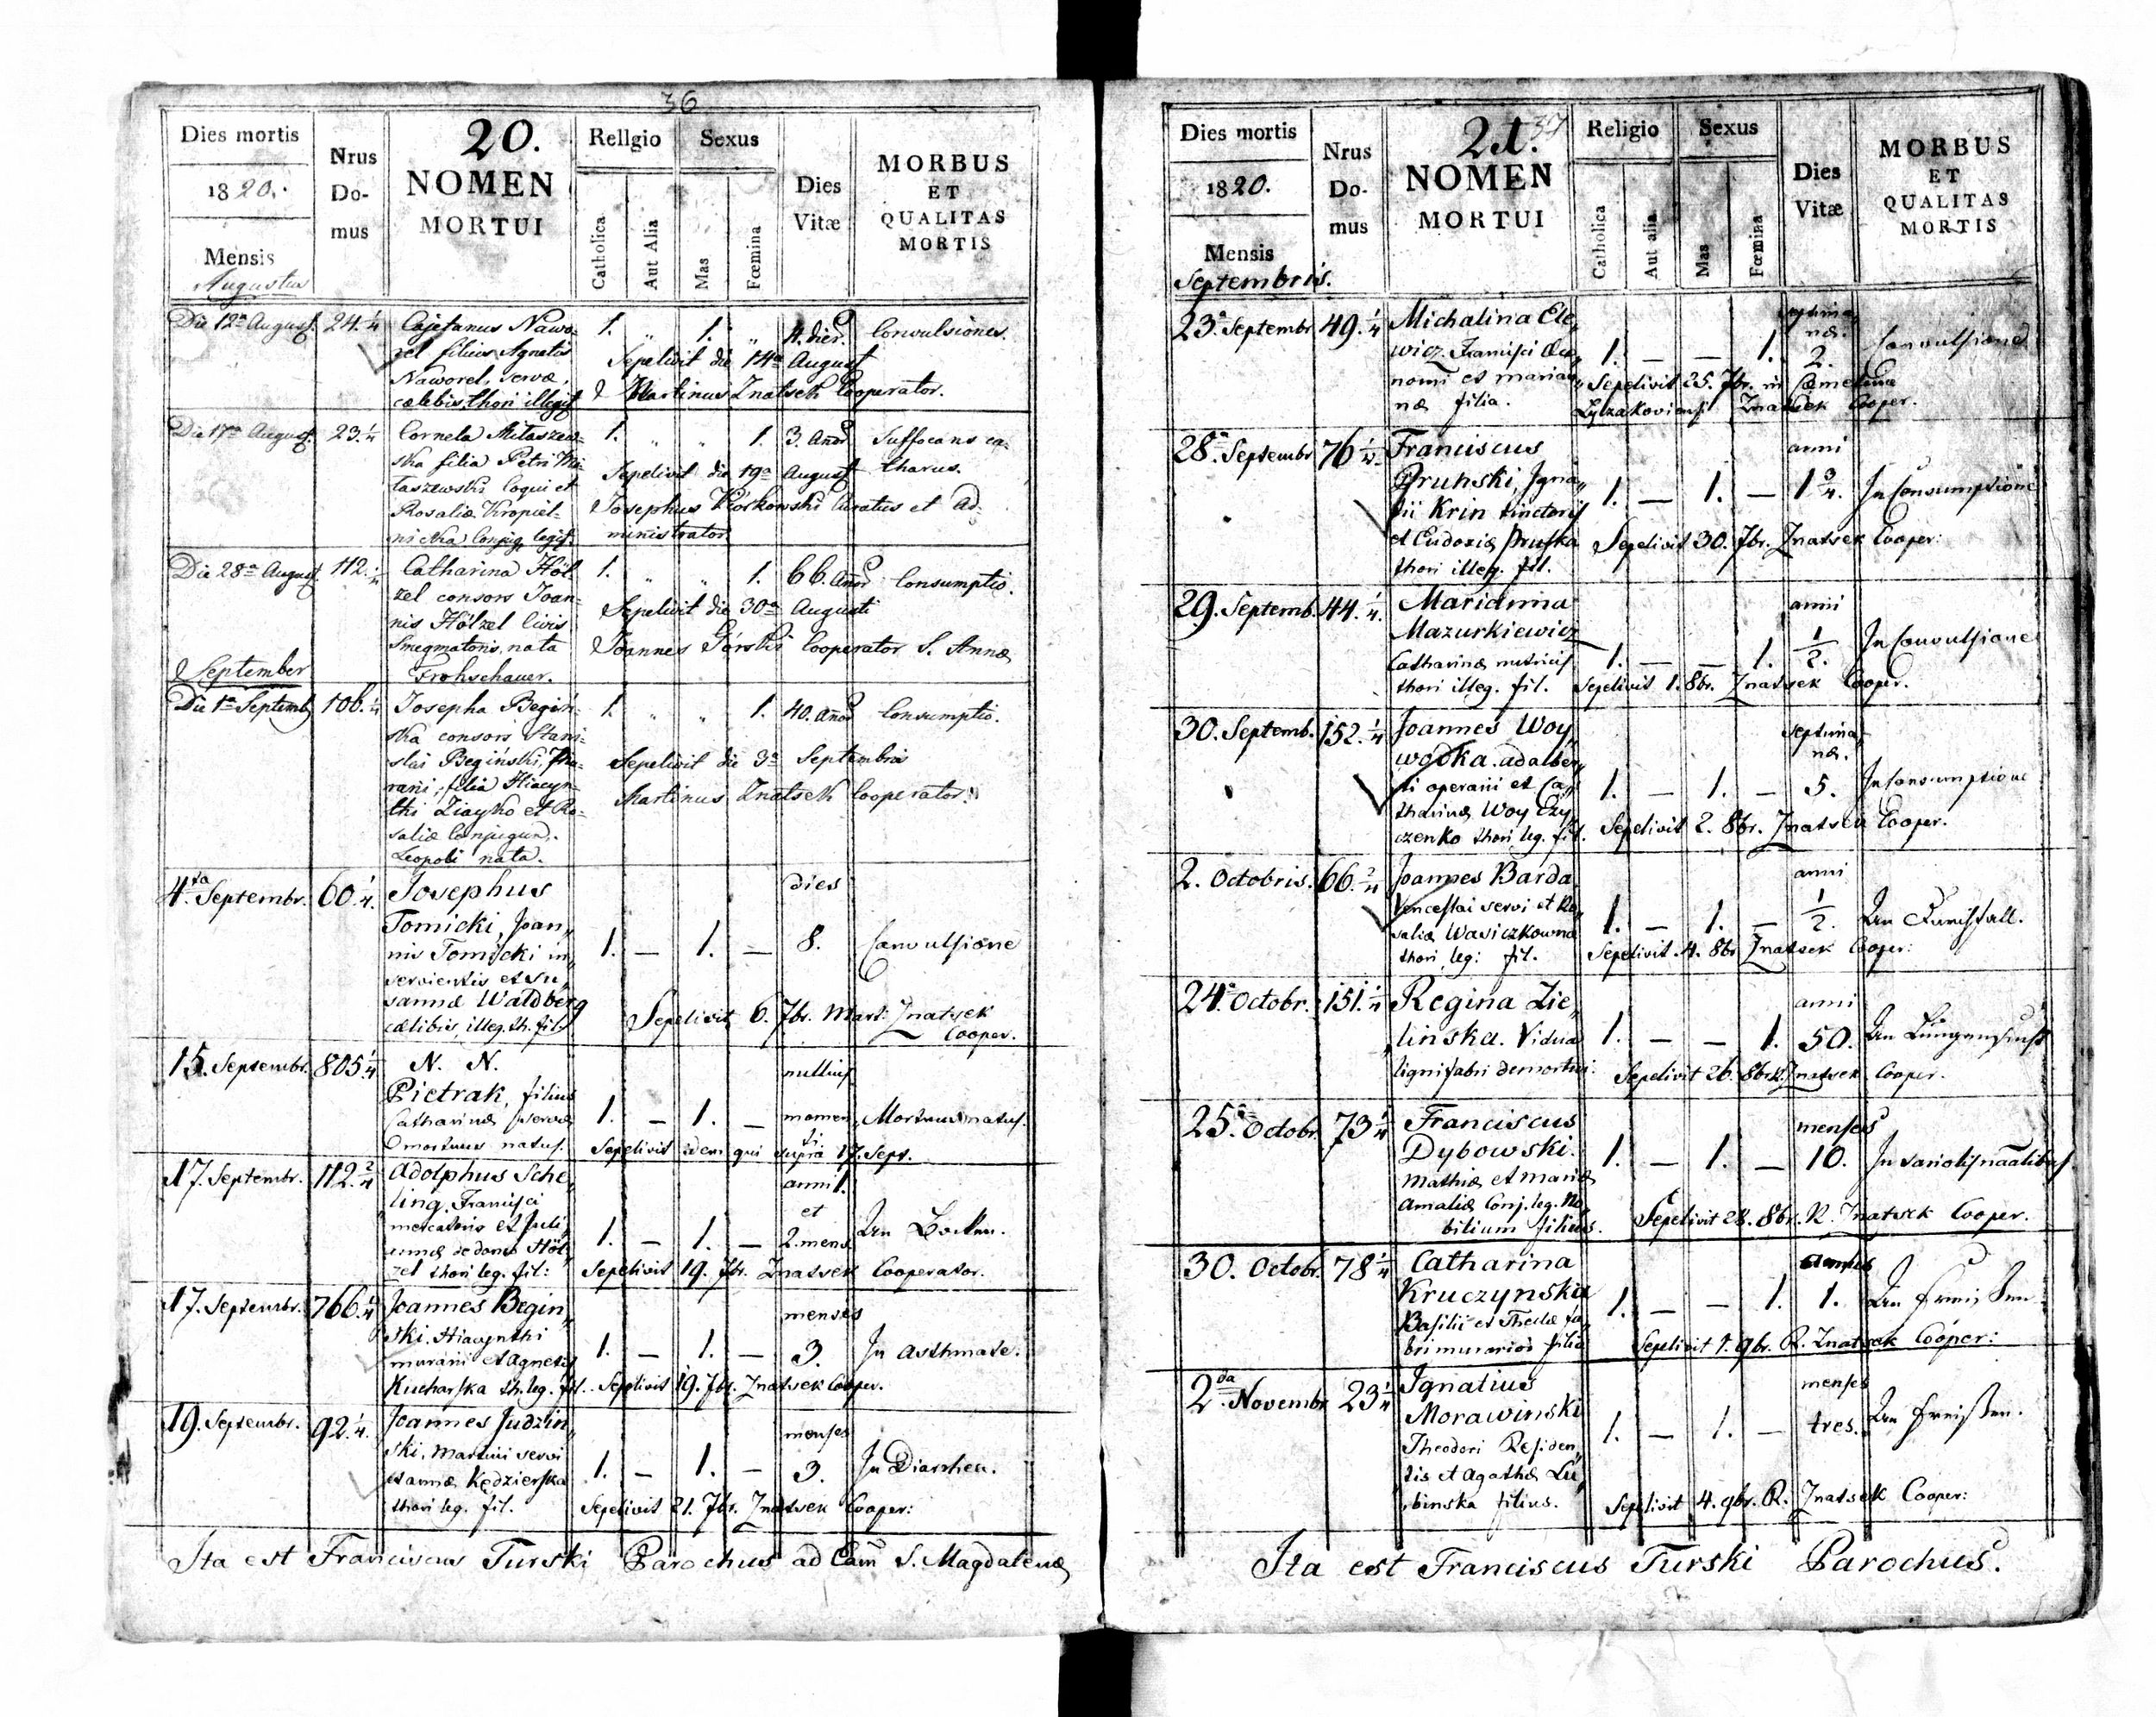 36
Dies mortis
1820.
Mensis
Augustus
Nrus
Do-
mus
20.
NOMEN
MORTUI
Rellgio
Catholica
Aut Alia
Sexus
Mas
Fœmina
Dies
Vitæ
MORBUS
ET
QUALITAS
MORTIS
Die 12a August. 24. 1/4 Cajetanus Nawo-
rel filius Agnetis
Naworel, servæ,
cælebis, thori illegit
1. „ 1. „ 4. dier. Convulsiones.
Sepelivit die 14a August
Martinus Znatsek Cooperator.
Die 17a August. 23. 1/4 Cornela Mitaszew-
ska filia Petri Mi-
taszewski Coqui et
Rosaliæ Kropiel-
nicka Conjug. legit.
1. „ „ 1. 3. Anor Suffocans ca-
tharus.
Sepelivit die 19a August
Josephus Kłorkowski Curatus et Ad-
ministrator
Die 28a August. 112. Catharina Höl-
zel consors Joan-
nis Hölzel civis
Smegmatoris, nata
Frohschauer.
1. „ „ 1. 66. Anor Consumptio.
Sepelivit die 30a Augusti
Joannes Górski Cooperator S. Annæ
September
Die 1a Septemb. 106. 1/4 Josepha Begiń-
ska consors Stani-
slai Begiński, Mu-
rarii; filia Hiacyn-
thi Ziayko et Ro-
saliæ Conjugum.
Leopoli nata.
1. „ „ 1. 40. Anor Consumptio.
Sepelivit die 3a Septembris
Martinus Znatsek Cooperator.
4ta Septembr. 60. 1/4. Josephus
Tomicki, Joan„
nis Tomicki in„
servientis et Su„
sannæ Waldberg
cælibis, illeg. th. fil.
dies
1. — 1. — 8. Convulsione
Sepelivit 6. 7br. Mart: Znatsek
Cooper.
15. Septembr. 805 1/4 N. N.
Pietrak, filius
Catharinæ servæ
mortuus natus.
nullius
momen„
ti.
1. — 1. — Mortuus natus.
Sepelivit idem qui supra 17. Sept.
17. Septembr. 112. 2/4 Adolphus Sche„
ling. Francisci
mercatoris et Juli„
annæ de domo Höl„
zel thori leg. fil:
anni 1.
et
2. mens
1. — 1. —
Sepelivit 19. 7br. Znatsek Cooperator.
17. Septembr. 766. Joannes Begin„
ski. Hiacynthi
murarii et Agnetis
Kucharska th. leg. fil.
menses
1. — 1. — 3. In Asthmate.
Sepelivit 19. 7br. Znatsek Cooper.
19. Septembr. 92. 1/4. Joannes Judzlin„
ski, Martini servi
et annæ Kędzierska
thori leg. fil.
menses
1. — 1. — 3. In Diarrhea.
Sepelivit 21. 7br. Znatsek Cooper:
Ita est Franciscus Turski Parochus ad Eam S. Magdalenæ
37
Dies mortis
1820.
Mensis
Septembris.
Nrus
Do-
mus
21.
NOMEN
MORTUI
Religio
Catholica
Aut alia
Sexus
Mas
Fœmina
Dies
Vitæ
MORBUS
ET
QUALITAS
MORTIS
23a Septembr 49. 1/4 Michalina Ele„
wicz. Francisci Œco„
nomi et marian„
næ filia.
septima„
næ.
1. — — 1. 2. Convulsione
Sepelivit 25. 7br. in Cæmeterio
Lyczakoviensi Znatsek Cooper.
28a Septembr 76 Franciscus
Pruhski, Igna„
tii Krin tinctoris
et Eudoxiæ Pruska
thori illeg. fil.
anni
1. — 1. — 1 3/4. In Consumptione
Sepelivit 30. 7br. Znatsek Cooper:
29. Septemb. 44. 1/4. Marianna
Mazurkiewicz
Catharinæ nutricis
thori illeg. fil.
anni
1. — — 1. 1/2. In Convulsione
Sepelivit 1. 8br. Znatsek Cooper.
30. Septemb. 152. 1/4 Joannes Woy„
wodka. adalber„
ti operarii et Ca„
tharinæ Woy Czy„
czenko thori leg. fil.
septima„
næ.
1. — 1. — 5. In Consumptione
Sepelivit 2. 8br. Znatsek Cooper.
2. Octobris. 66. 2/4 Joannes Barda
Venceslai servi et Ro„
saliæ Wasiczkowna
thori leg: fil.
anni
1. — 1. — 1/2.
Sepelivit 4. 8br Znatsek Cooper:
24a Octobr. 151. 1/4 Regina Zie„
linska. Vidua
lignifabri demortui.
anni
1. — — 1. 50. An Lungensucht
Sepelivit 26. 8br. R. Znatsek Cooper.
25a Octobr. 73 1/4 Franciscus
Dybowski.
Mathiæ et Mariæ
Amaliæ Conj. leg. No„
bilium filius.
menses
1. — 1. — 10. In variolis naalibus.
Sepelivit 28. 8br. R. Znatsek Cooper.
30. Octobr. 78 1/4 Catharina
Kruczynska
Basilii et Theclæ fa„
bri murarior filia
1. — — 1. 1. An Freisen
Sepelivit 1. 9br. R. Znatsek Cooper:
2da Novembr. 23 1/4 Ignatius
Morawinski
Theodori Residen„
tis et Agathæ Lu„
binska filius.
menses
1. — 1. — tres. An Freisen.
Sepelivit 4. 9br. R. Znatsek Cooper:
Ita est Franciscus Turski Parochus.